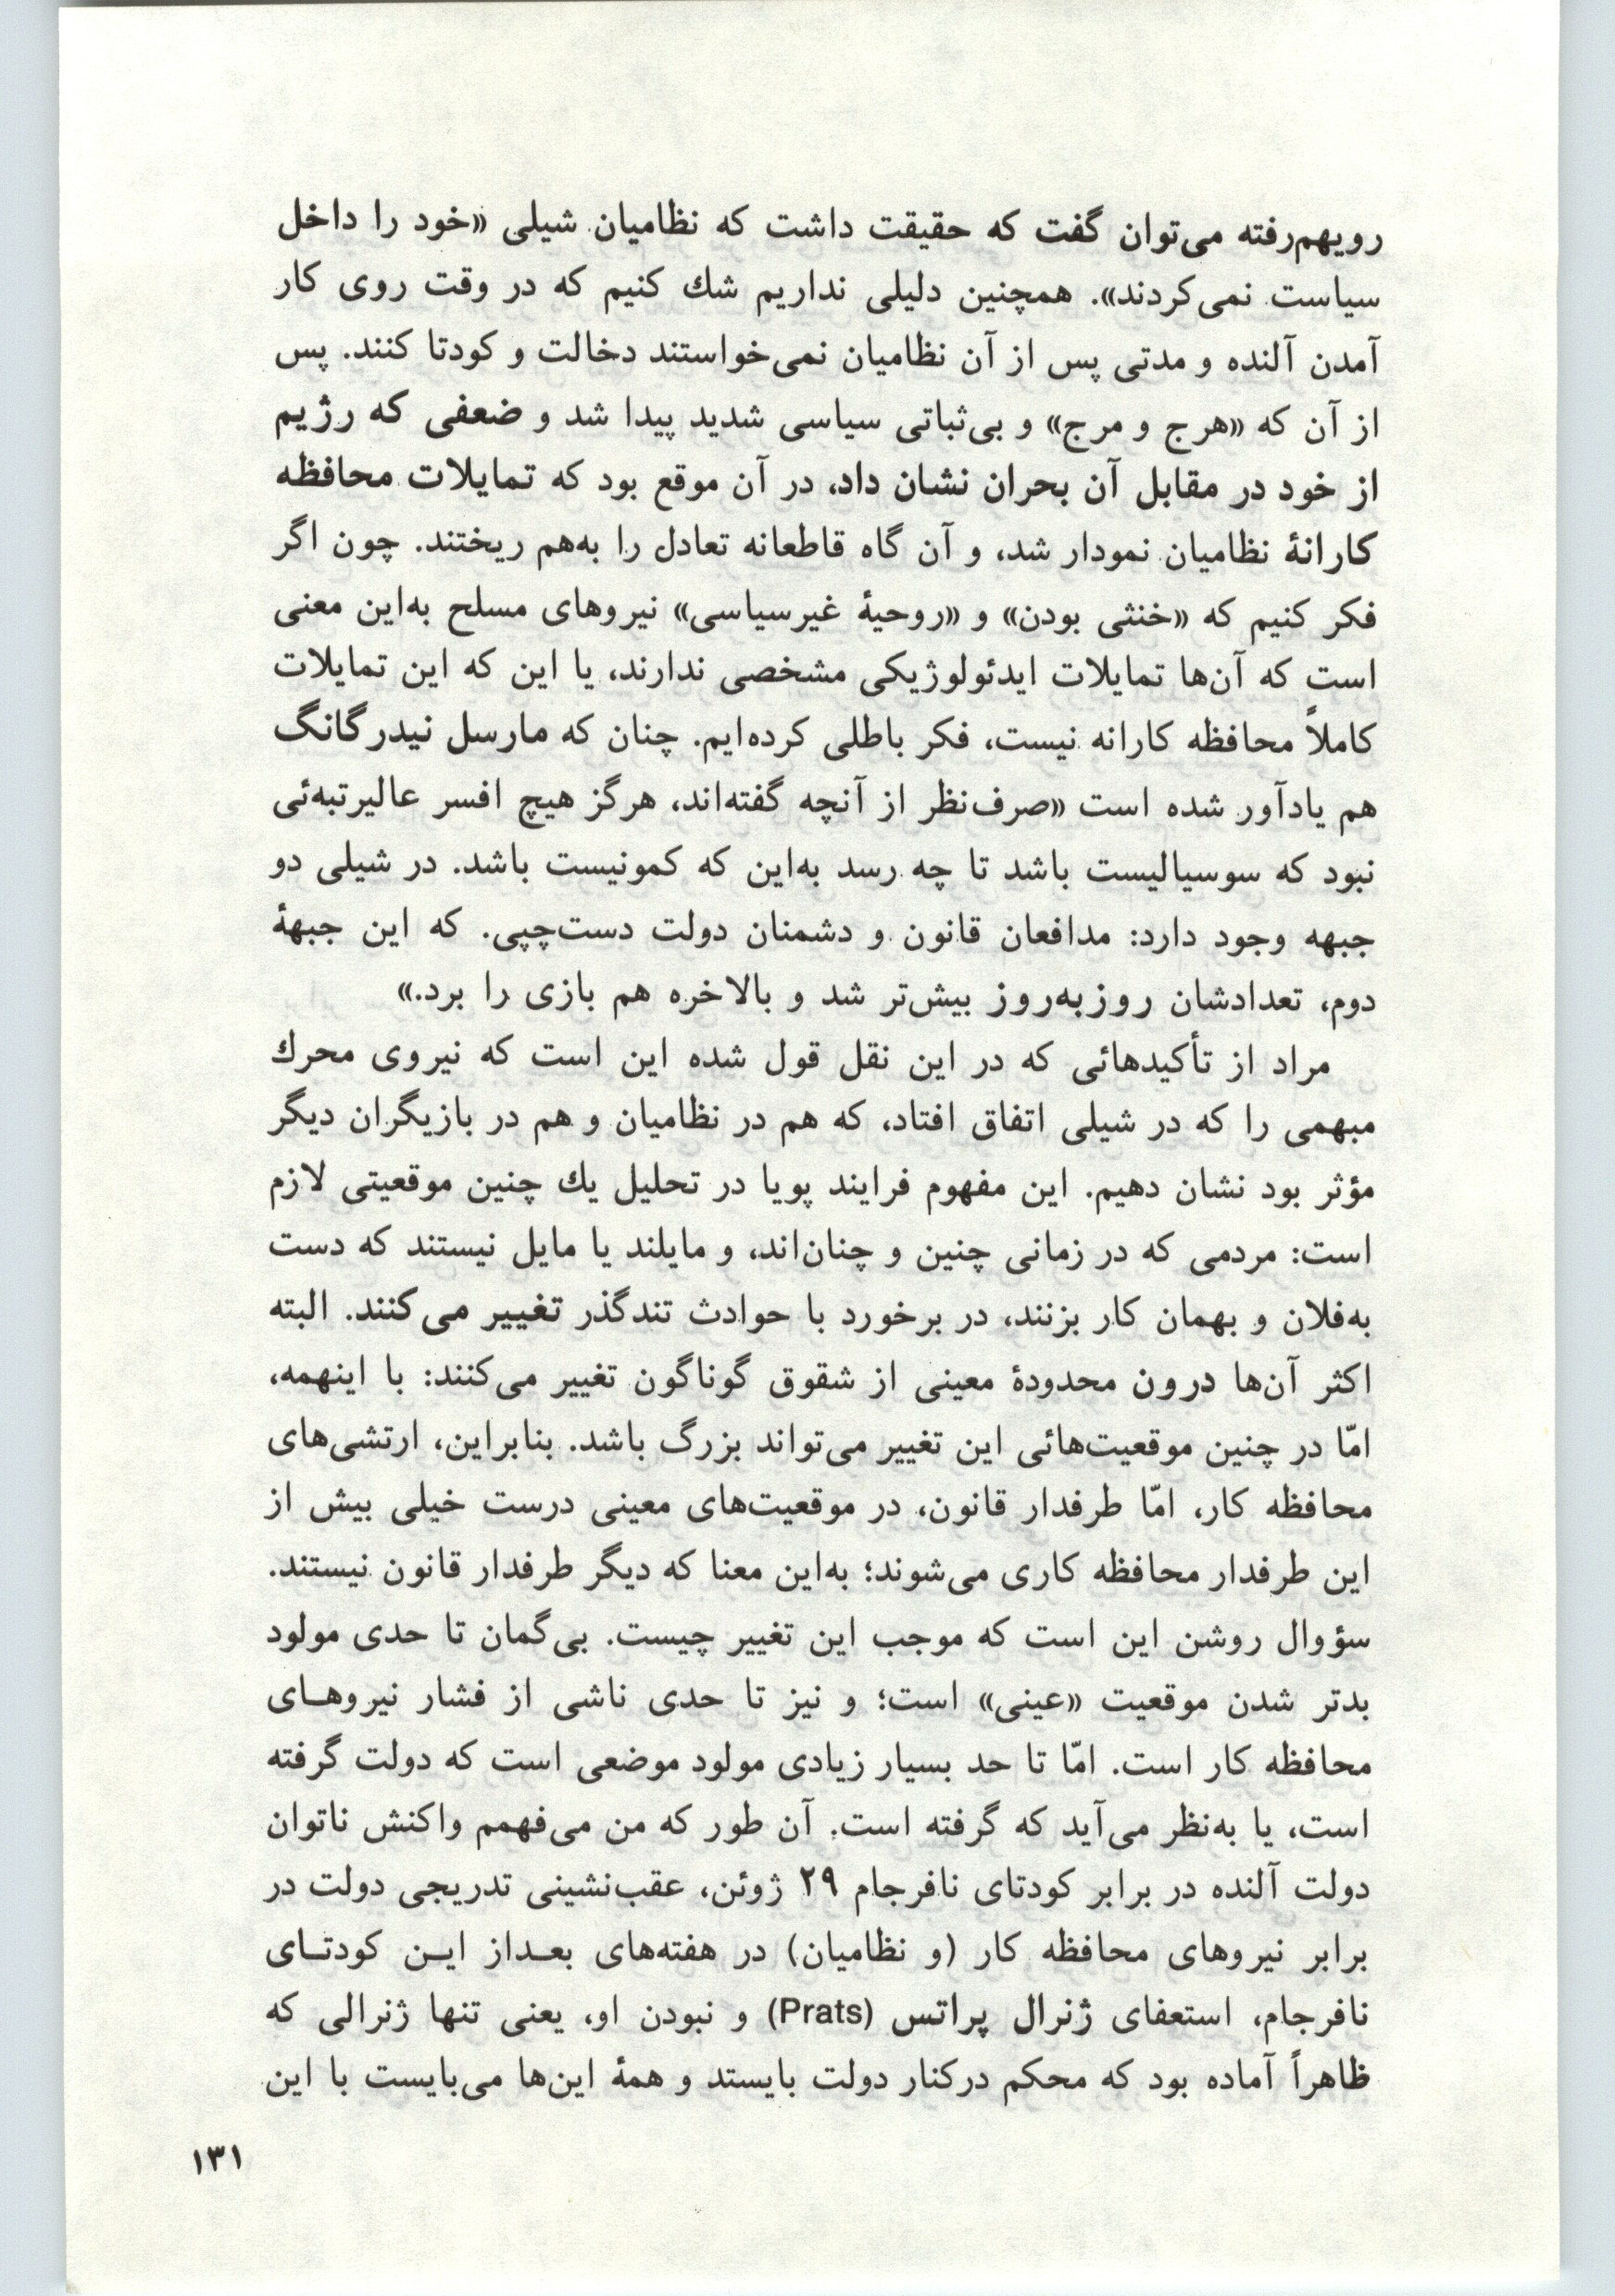 رویهم‌رفته می‌توان گفت که حقیقت داشت که نظامیان شیلی «خود را داخل
سیاست نمی‌کردند». همچنین دلیلی نداریم شك کنیم که در وقت روی کار
آمدن آلنده و مدتی پس از آن نظامیان نمی‌خواستند دخالت و کودتا کنند. پس
از آن که «هرج و مرج» و بی‌ثباتی سیاسی شدید پیدا شد و ضعفی که رژیم
از خود در مقابل آن بحران نشان داد، در آن موقع بود که تمایلات محافظه
کارانهٔ نظامیان نمودار شد، و آن گاه قاطعانه تعادل را به‌هم ریختند. چون اگر
فکر کنیم که «خنثی بودن» و «روحیهٔ غیرسیاسی» نیروهای مسلح به‌این معنی
است که آن‌ها تمایلات ایدئولوژیکی مشخصی ندارند، یا این که این تمایلات
کاملاً محافظه کارانه نیست، فکر باطلی کرده‌ایم. چنان که مارسل نیدرگانگ
هم یادآور شده است «صرف‌نظر از آنچه گفته‌اند، هرگز هیچ افسر عالیرتبه‌ئی
نبود که سوسیالیست باشد تا چه رسد به‌این که کمونیست باشد. در شیلی دو
جبهه وجود دارد: مدافعان قانون و دشمنان دولت دست‌چپی. که این جبههٔ
دوم، تعدادشان روزبه‌روز بیش‌تر شد و بالاخره هم بازی را برد.»
مراد از تأکیدهائی که در این نقل قول شده این است که نیروی محرك
مبهمی را که در شیلی اتفاق افتاد، که هم در نظامیان و هم در بازیگران دیگر
مؤثر بود نشان دهیم. این مفهوم فرایند پویا در تحلیل یك چنین موقعیتی لازم
است: مردمی که در زمانی چنین و چنان‌اند، و مایلند یا مایل نیستند که دست
به‌فلان و بهمان کار بزنند، در برخورد با حوادث تندگذر تغییر می‌کنند. البته
اکثر آن‌ها درون محدودهٔ معینی از شقوق گوناگون تغییر می‌کنند: با اینهمه،
امّا در چنین موقعیت‌هائی این تغییر می‌تواند بزرگ باشد. بنابراین، ارتشی‌های
محافظه کار، امّا طرفدار قانون، در موقعیت‌های معینی درست خیلی بیش از
این طرفدار محافظه کاری می‌شوند؛ به‌این معنا که دیگر طرفدار قانون نیستند.
سؤوال روشن این است که موجب این تغییر چیست. بی‌گمان تا حدی مولود
بدتر شدن موقعیت «عینی» است؛ و نیز تا حدی ناشی از فشار نیروهـای
محافظه کار است. امّا تا حد بسیار زیادی مولود موضعی است که دولت گرفته
است، یا به‌نظر می‌آید که گرفته است. آن طور که من می‌فهمم واکنش ناتوان
دولت آلنده در برابر کودتای نافرجام ۲۹ ژوئن، عقب‌نشینی تدریجی دولت در
برابر نیروهای محافظه کار (و نظامیان) در هفته‌های بعـداز ایـن کودتـای
نافرجام، استعفای ژنرال پراتس (Prats) و نبودن او، یعنی تنها ژنرالی که
ظاهراً آماده بود که محکم درکنار دولت بایستد و همهٔ این‌ها می‌بایست با این
۱۳۱